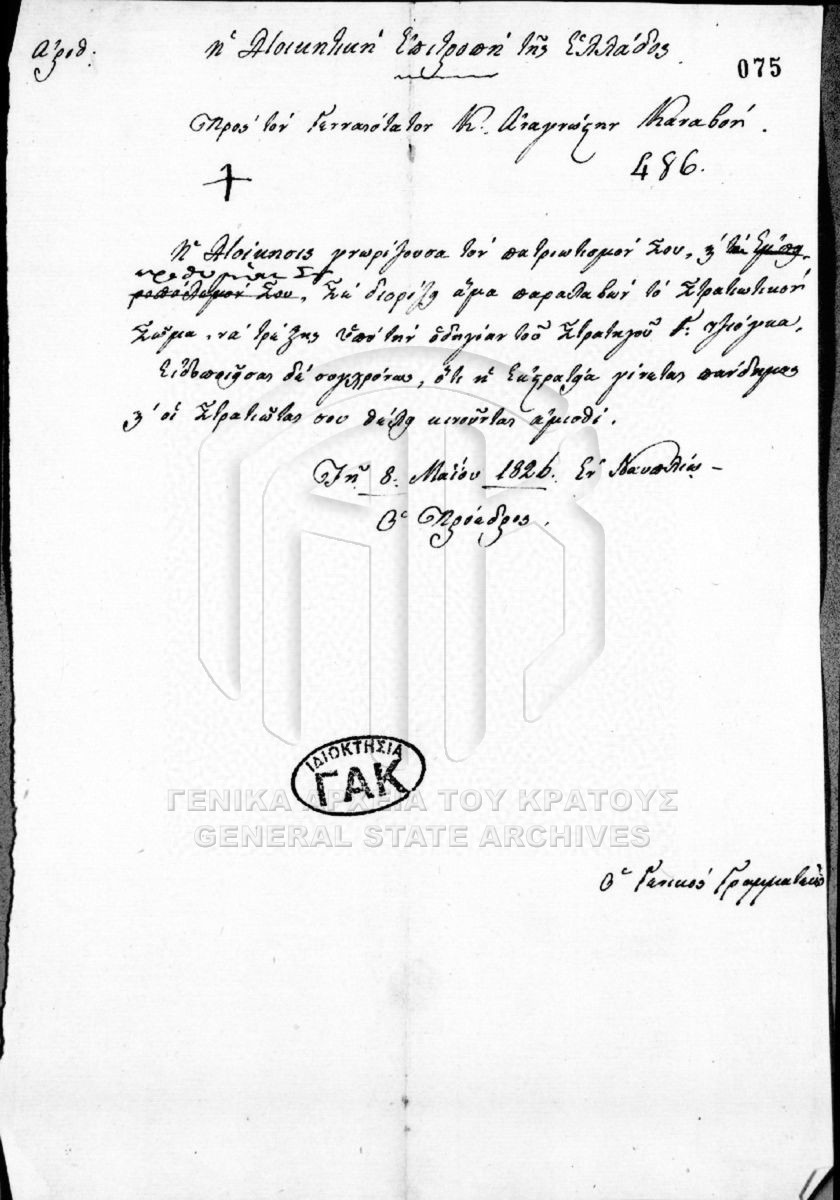 Ἀριθ:
Ἡ Διοικητική Ἐπιτροπή τῆς Ἑλλάδος
075
Πρός τόν Γενναιότατον Κ. Ἀναγνώστην Καναβόν.
486.
Ἡ Διοίκησις γνωρίζουσα τόν πατριωτισμόν Σου, ϗ τήν Ἐμπει
προθυμίαν Σ
ροπόλεμόν Σου, Σέ διορίζει ἅμα παραλαβών τό Στρατιωτικόν
Σῶμα, νά τρέξῃς ὑπό τήν ὁδηγίαν τοῦ Στρατηγοῦ Γ. Τζιόγκα.
Εἰδοποιῆσαι δέ συγχρόνως, ὅτι ἡ Ἐκστρατεία γίνεται πανδήμως
ϗ οἱ Στρατιῶται σου θέλει κινοῦνται ἀμισθί.
Τῇ 8 Μαΐου 1826. Ἐν Ναυπλίῳ
Ὁ Πρόεδρος.
ΙΔΙΟΚΤΗΣΙΑ
ΓΑΚ
ΓΕΝΙΚΑ ΑΡΧΕΙΑ ΤΟΥ ΚΡΑΤΟΥΣ
GENERAL STATE ARCHIVES
Ὁ Γενικός Γραμματεύς